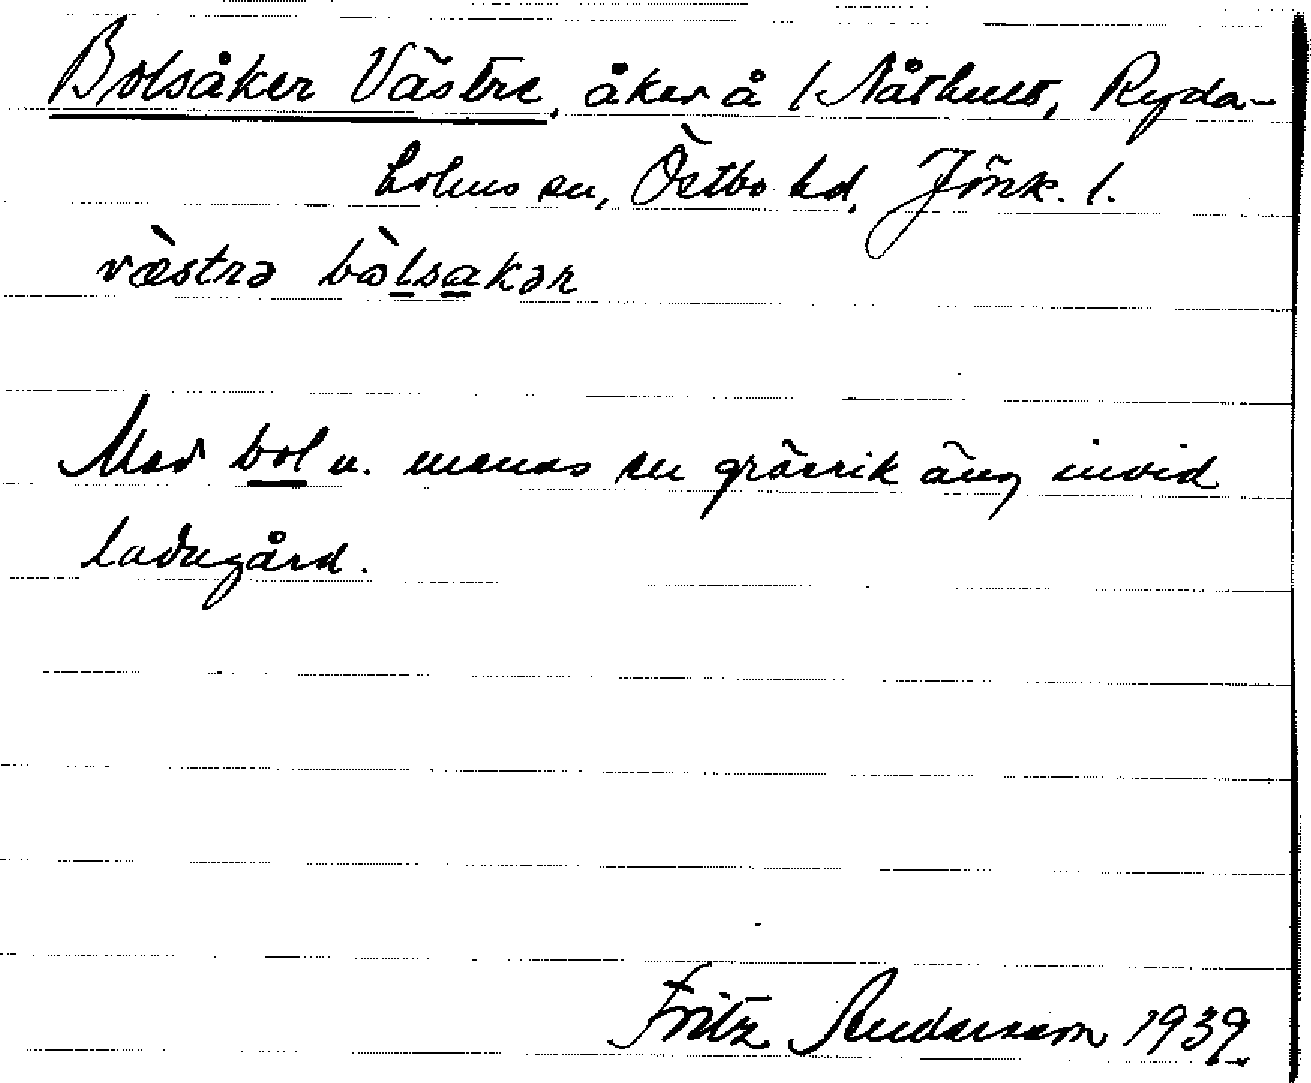 Bolsåker Västre, åker å 1 Nåthult, Ryda-
holms sn, Östbo hd, Jönk. l.
västrə bòlsakər
Med bol u. menas en gräsrik äng invid
ladugård.
Fritz Andersson 1939